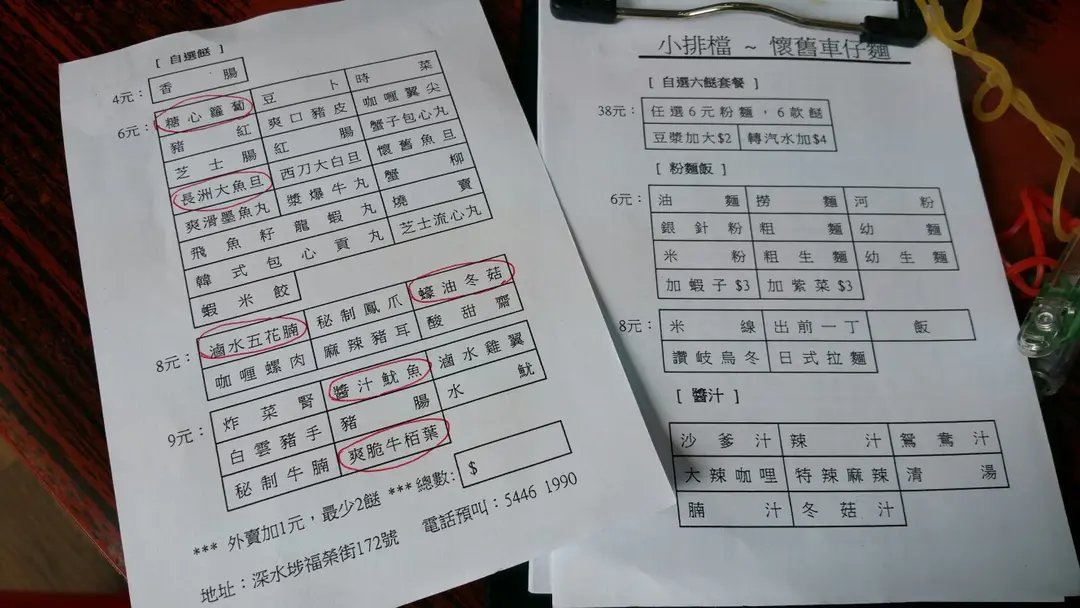 [ 自選餸 ]
4元： 香腸
6元： 糖心蘿蔔 豆卜 時菜
豬紅 爽口豬皮 咖喱翼尖
芝士腸 紅腸 蟹子包心丸
長洲大魚旦 西刀大白旦 懷舊魚旦
爽滑墨魚丸 漿爆牛丸 蟹柳
飛魚籽龍蝦丸 燒賣
韓式包心貢丸 芝士流心丸
蝦米餃
8元： 滷水五花腩 秘制鳳爪 蠔油冬菇
咖喱螺肉 麻辣豬耳 酸甜齋
9元： 炸菜腎 醬汁魷魚 滷水雞翼
白雲豬手 豬腸 水魷
秘制牛腩 爽脆牛栢葉
*** 外賣加1元，最少2餸 *** 總數: $
地址：深水埗福榮街172號 電話預叫：5446 1990
小排檔 ~ 懷舊車仔麵
[ 自選六餸套餐 ]
38元： 任選6元粉麵，6款餸
豆漿加大$2 轉汽水加$4
[ 粉麵飯 ]
6元： 油麵 撈麵 河粉
銀針粉 粗麵 幼麵
米粉 粗生麵 幼生麵
加蝦子$3 加紫菜$3
8元： 米線 出前一丁 飯
讚岐烏冬 日式拉麵
[ 醬汁 ]
沙爹汁 辣汁 鴛鴦汁
大辣咖哩 特辣麻辣 清湯
腩汁 冬菇汁